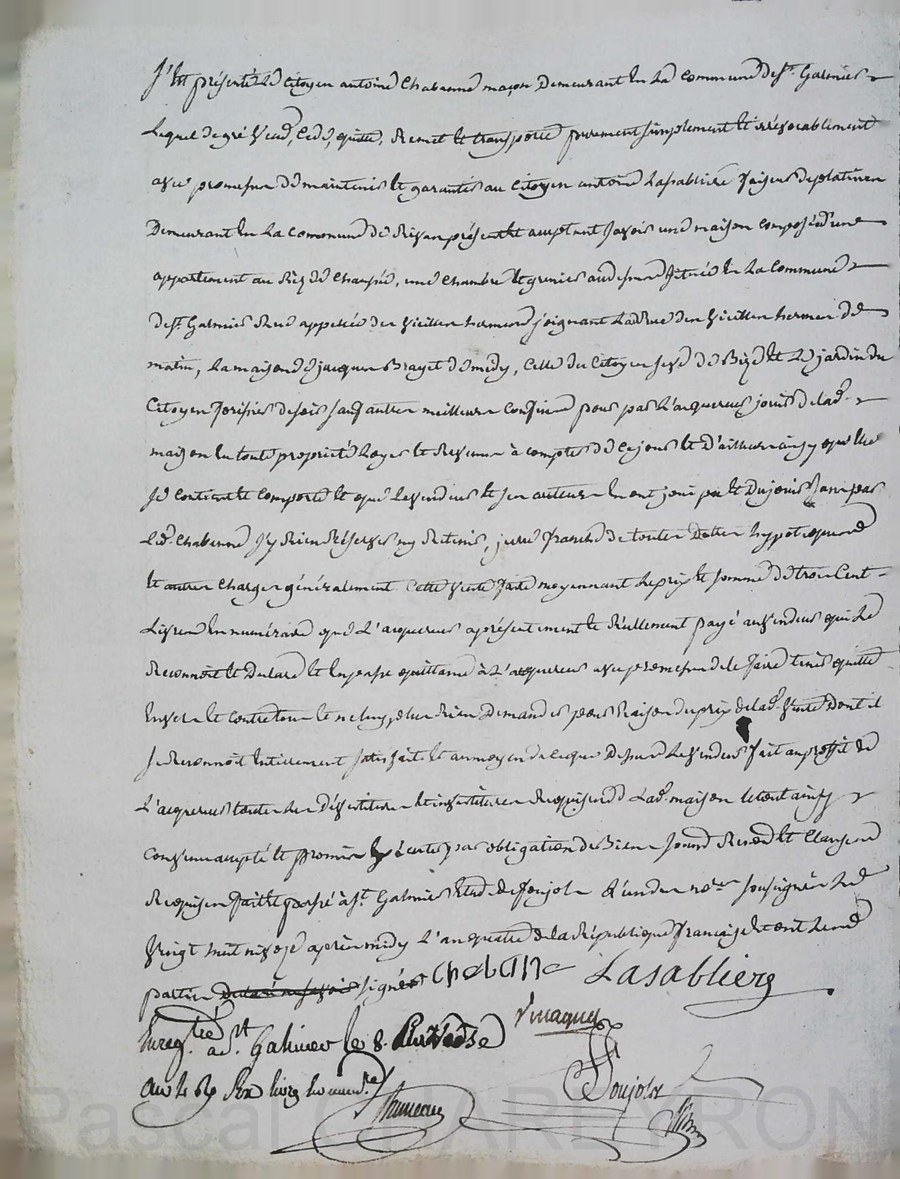 S'est présenté Le Citoyen antoine Chabanne maçon Demeurant En La Commune de st. Galmier
Lequel de gré Vend, Cede, quitte, Remet Et transporte purement simplement Et irrévocablement
avec promesse De maintenir Et garantir au Citoyen antoine Lasabliere faiseur de platinen
Demeurant En La Commune de present Et aceptant savoir une maison composée d'une
appartement au Rez de Chaussé, une Chambre Et grenier audessus Située En La Commune
de st. Galmier Rue appellée des Vieilles joignant La Rue des Vieilles de
matin, La maison de jacques Brayet de midy, Celle du Citoyen de Bize Et Le jardin du
Citoyen de soir sauf autres meilleurs Confins pour par L'acquereur jouir de lad.
maison En toute proprieté Loyer Et Revenu à compter de Ce jour Et D'ailleurs ainsy qu'elle
Se Contient Et Comporte Et que Le Vendeur Et Ses auteurs En ont joui pu Et Du jouir sans par
Led. Chabanne Sy Rien Réserver ny Retenir, franche de toutes Dettes hypoteques
Et autres Charges généralement Cette Vente faite moyennant Le prix Et somme de trois Cent
Livres En numéraire que L'acquereur a présentement Et Réellement payé au Vendeur qui Le
Reconnoit Et Declare Et En passe quittance à L'acquereur avec promesse de Le faire tenir quitte
Envers Et Contre tous Et ne luy plus Rien Demander pour Raison du prix de lad. Vente Dont il
Se Reconnoit Entierement Satisfait Et au moyen de Ce que Dessus Le Vendeur fait au profit de
L'acquereur toutes Les Dévestitures Et investitures Requises de Lad. maison Le tout ainsy
Convenu accepté Et promis par obligation de Biens Soumd. Renond. Et Clauses
Requises fait Et passé à st. Galmier Etude de Ponjole L'un des nores. soussignés Le
Vingt huit nivose après midy L'an quatre de la République française Et ont Les
parties signé Chabane Lasabliere
Enregtré. a st. Galmier le 8. Pluviose
an 4
Ponjole